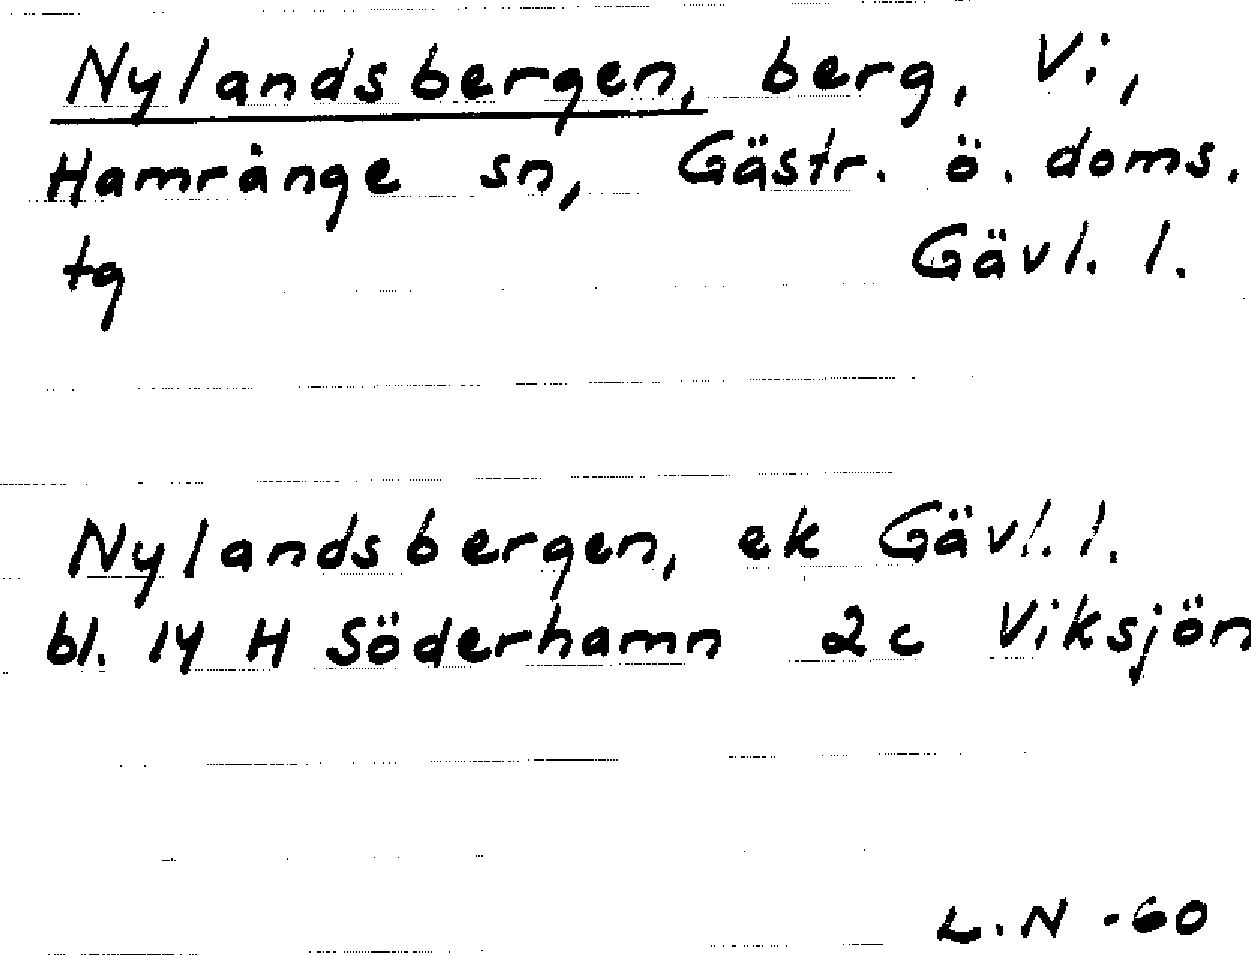 Nylandsbergen, berg, Vi,
Hamrånge sn, Gästr. ö. doms.
tg Gävl. l.
Nylandsbergen, ek Gävl. l.
bl. 14 H Söderhamn 2c Viksjön
L.N -60